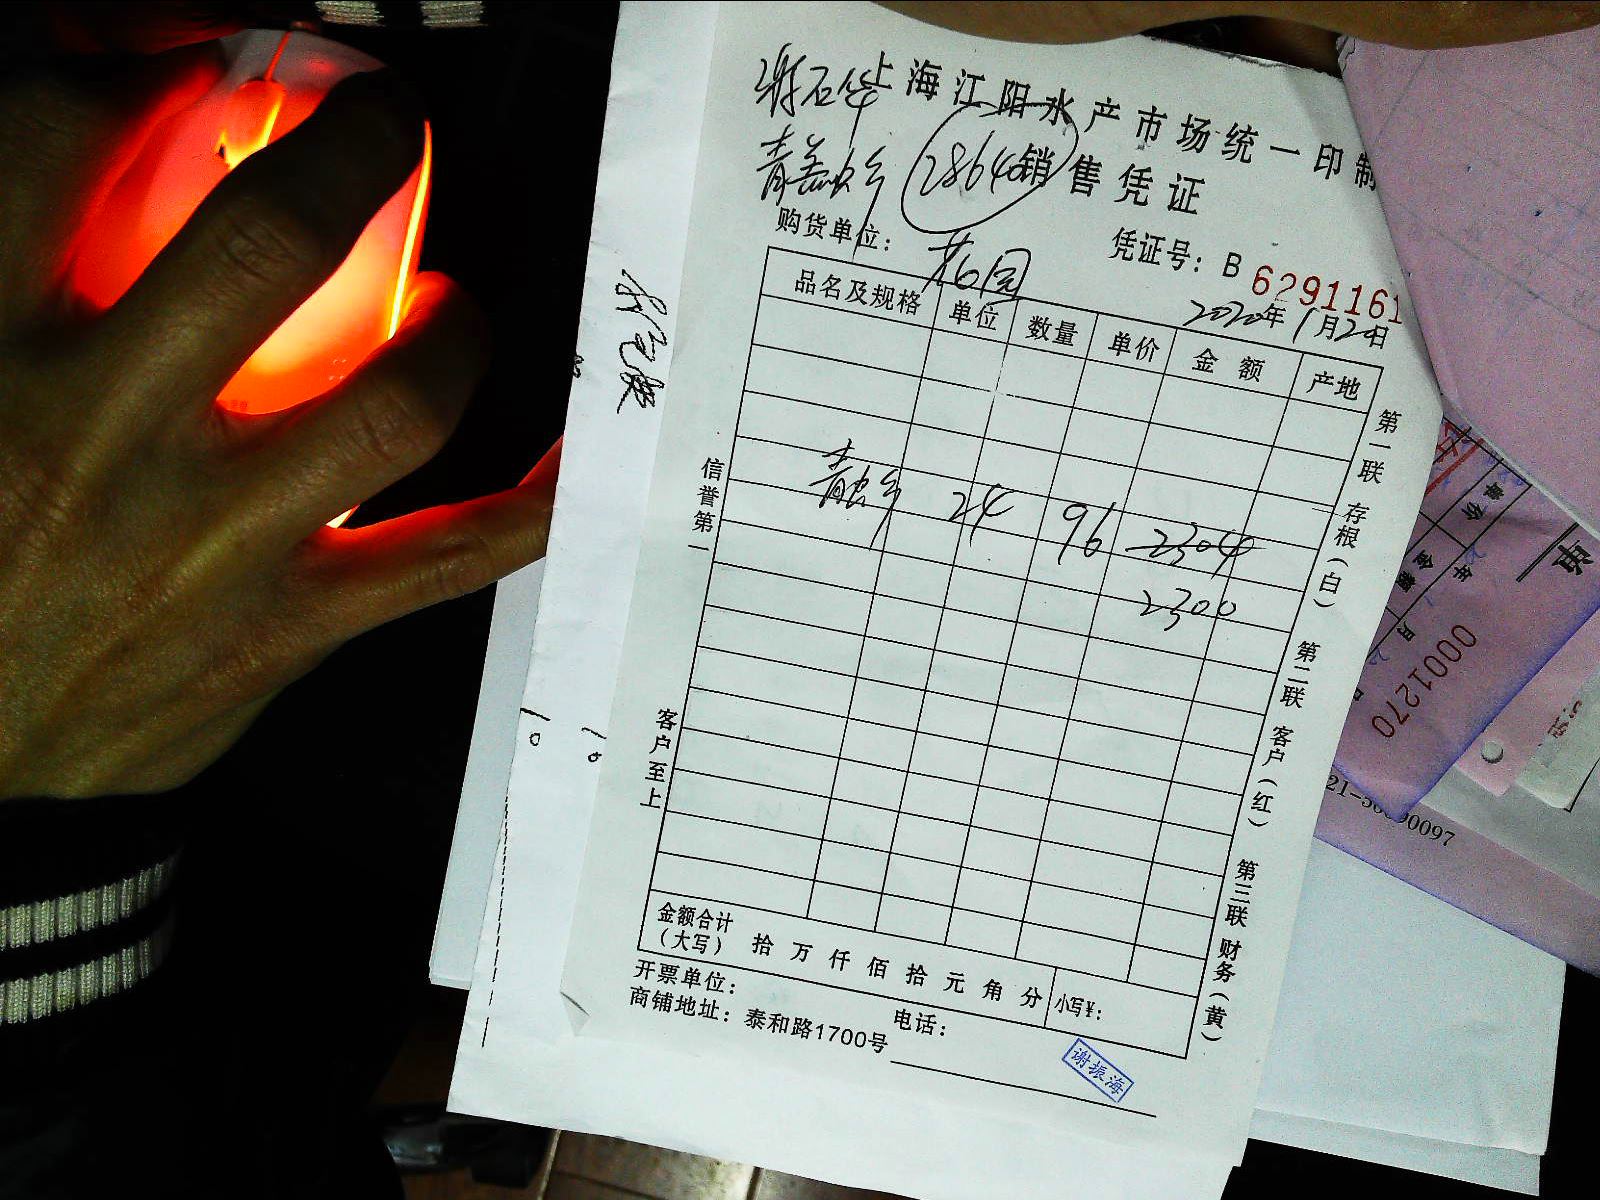 上海江阳水产市场统一印制
2864
销售凭证
购货单位：
凭证号：B 6291161
2020年1月20日
品名及规格 单位 数量 单价 金额 产地
24 96 2304
2300
金额合计
（大写） 拾 万 仟 佰 拾 元 角 分 小写¥：
开票单位： 电话：
商铺地址：泰和路1700号
谢振海
信誉第一
客户至上
第一联 存根（白）
第二联 客户（红）
第三联 财务（黄）
10
10
单价
金额
年
月
0001270